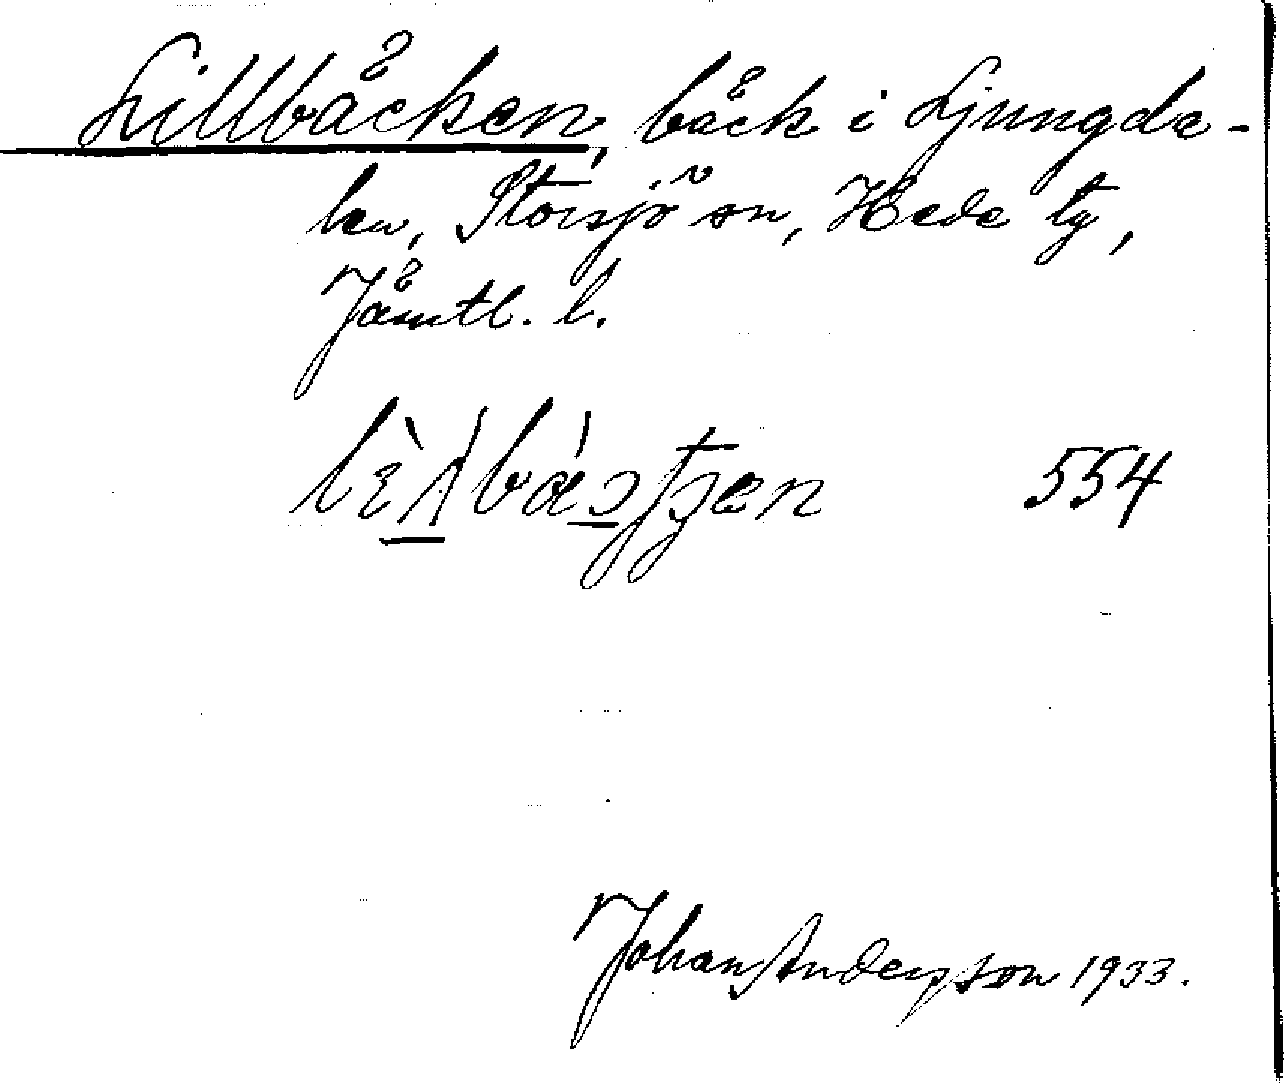 Lillbäcken, bäck i Ljungda-
len, Storsjö sn, Hede tg,
Jämtl. l.
554
Johan Andersson 1933.